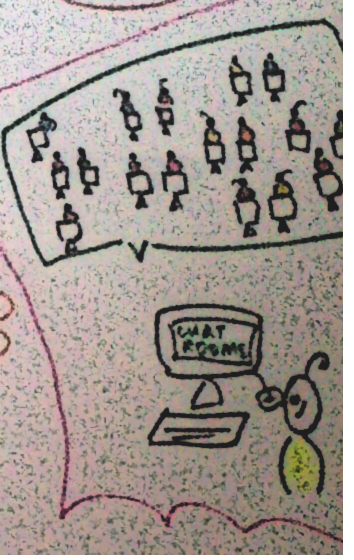 CHAT
ROOMS